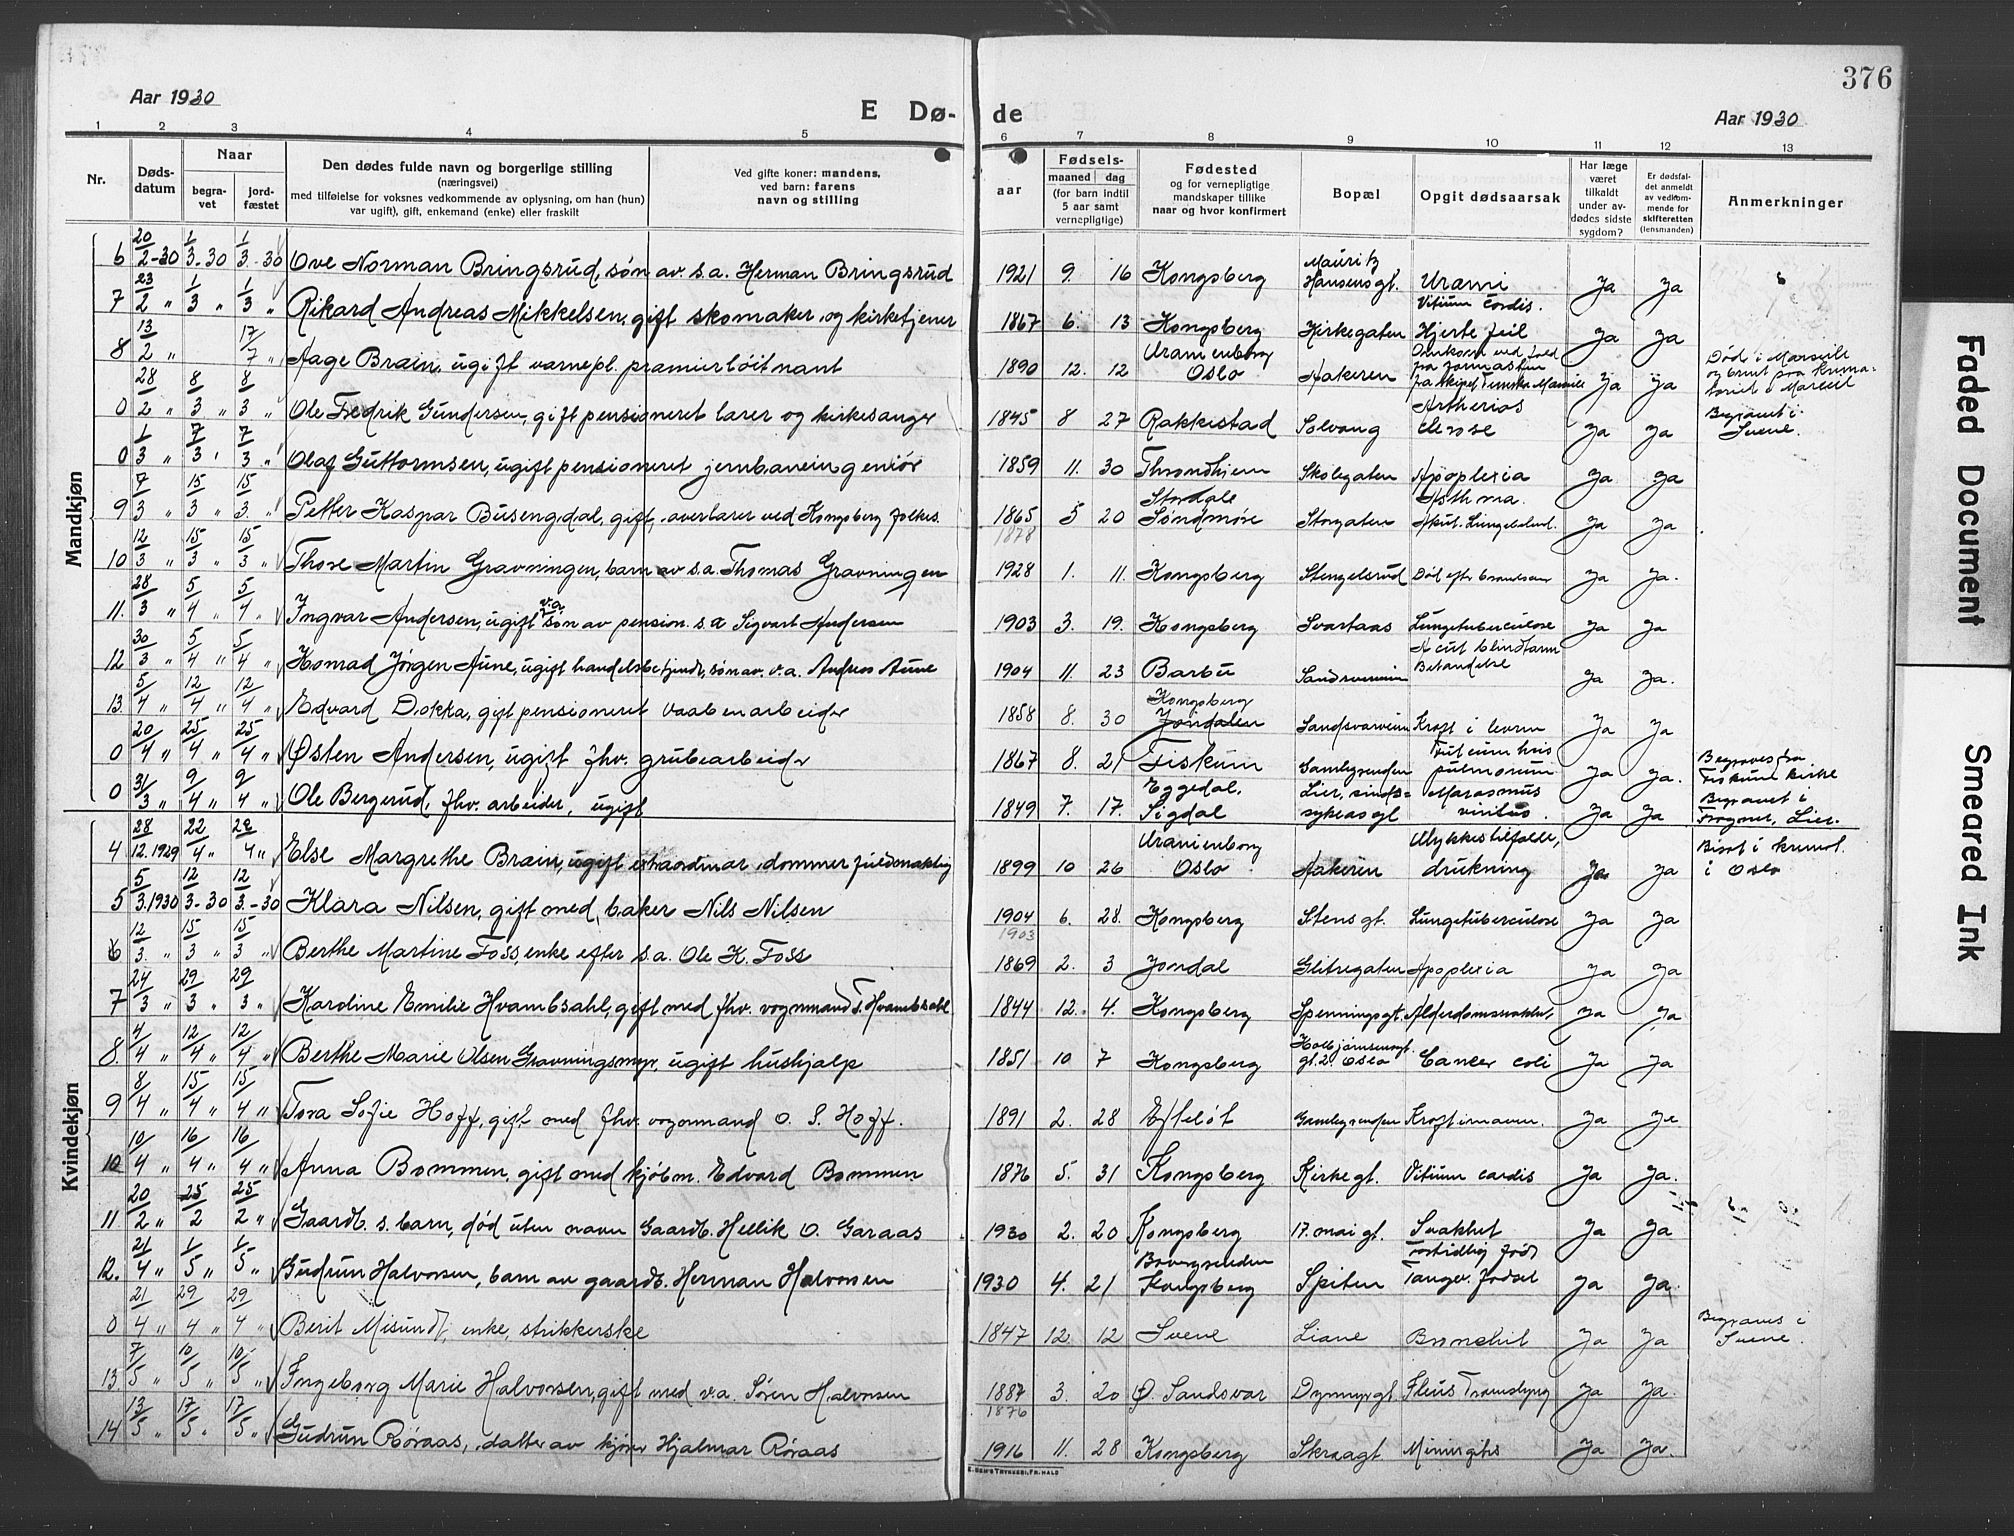 376
Aar 1930
E Dø- de
Aar 1930
1 2 3 4 5 6 7 8 9 10 11 12 13
Nr. Døds-datum Naar begra-vet jord-fæstet
Den dødes fulde navn og borgerlige stilling
(næringsvei)
med tilføielse for voksnes vedkommende av oplysning, om han (hun)
var ugift), gift, enkemand (enke) eller fraskilt
Ved gifte koner: mandens,
ved barn: farens
navn og stilling
Fødsels-
aar maaned dag
(for barn indtil
5 aar samt
vernepligtige)
Fødested
og for vernepligtige
mandskaper tillike
naar og hvor konfirmert
Bopæl
Opgit dødsaarsak
Har læge
været
tilkaldt
under av-
dødes sidste
sygdom?
Er dødsfal-
det anmeldt
av vedkom-
mende for
skifteretten
(lensmanden)
Anmerkninger
Mandkjøn
6 20/2-30 1/3-30 1/3-30 Ove Norman Bringsrud, søn av s.a. Herman Bringsrud 1921 9. 16 Kongsberg Mauritz Hansens gt. Urämi Ja Ja
7 23/2 " 1/3 " 1/3 " Rikard Andreas Mikkelsen, gift skomaker og kirketjener 1867 6. 13 Kongsberg Kirkegaten Vitium Cordis. Hjertefeil Ja Ja
8 13/2 " 17/7 " Aage Brain, ugift varnepl. præmierløitnant 1890 12. 12 Uranienborg Oslo Aakeren Omkom ved fald fra formasten fra skipet Marseille Ja Ja Død i Marseille og brent paa krema-
0 28/2 " 8/3 " 8/3 " Ole Fredrik Gundersen, gift pensioneret lærer og kirkesanger 1845 8 27 Rakkestad Solvang Artherios clerose Ja Ja Begravet i Svene.
0 1/3 " 7/3 " 7/3 " Olaf Guttormsen, ugift pensioneret jernbaneingeniør 1859 11. 30 Throndhjem Skolegaten Apoplexia Ja Ja
9 7/3 " 15/3 " 15/3 " Petter Kaspar Busengdal, gift, overlærer ved Kongsberg folkes. 1865 5 20 Stordale Søndmøre Storgaten Asthma. Akut. Ja Ja
1878
10 12/3 " 15/3 " 15/3 " Thore Martin Gravningen, barn av s.a. Thomas Gravningen 1928 1. 11. Kongsberg Stengelsrud Død efter brandsaar Ja Ja.
11. 28/3 " 5/4 " 5/4 " Ingvar Andersen, ugift v.a. søn av pension. s.a Sigvart Andersen 1903 3. 19. Kongsberg Svartaas Lungetuberculose Ja Ja
12 30/3 " 5/4 " 5/4 " Konrad Jørgen Aune, ugift handelsbetjent, søn av. v.a. Andreas Aune 1904 11. 23 Barbu Acut blindtarm Betændelse Ja Ja.
13. 5/4 " 12/4 " 12/4 " Edvard Dokka, gift pensioneret vaabenarbeider 1858 8. 30 Kongsberg Jondalen Sandsværveien Kræft i levern Ja Ja
0 20/4 " 25/4 " 25/4 " Østen Andersen, ugift fhv. grubearbeider 1867 8. 21 Fiskum Gamlegrenden pulmonum Ja Ja. Begraves fra Fiskum kirke
0 31/3 " 9/4 " 9/4 " Ole Bergerud, fhv. arbeider, ugift 1849 7. 17. Eggedal, Sigdal Lier, sinds= sykeasyl Marasmus Ja Ja Begravet i Frogner, Lier.
Kvindekjøn
4 28/12.1929 22/4 " 22/4 " Else Margrethe Brain, ugift extraordinær dommerfuldmægtig 1899 10 26 Uranienborg Oslo Aakeren Ulykkestilfælde, drukning Ja Ja Bisat i kremat. i Oslo
5 5/3.1930 12/3-30 12/3-30 Klara Nilsen, gift med baker Nils Nilsen 1904 6. 28. Kongsberg Stens gt. Lungetuberculose Ja Ja
1903
6 12/3. " 15/3 " 15/3 " Berthe Martine Foss, enke efter s.a. Ole K. Foss 1869 2. 3 Jondal Glitregaten Apoplexia Ja Ja
7 24/3 " 29/3 " 29/3 " Karoline Emilie Hvambsahl, gift med fhv. vognmand T. Hvambsahl 1844 12. 4. Kongsberg Spenningsgt. Alderdomssvakhet, Ja Ja
8. 4/4 " 12/4 " 12/4 " Berthe Marie Olsen Gravningsmyr, ugift hushjælp 1851 10 7 Kongsberg gt. 2. Oslo Cancer coli Ja Ja
9 8/4 " 15/4 " 15/4 " Tora Sofie Hoff, gift med fhv. vognmand O. S. Hoff. 1891 2. 28 Efteløt Gamlegrenden Kræft i maven. Ja Ja
10 10/4 " 16/4 " 16/4 " Anna Bommen, gift med kjøbm. Edvard Bommen. 1876 5. 31 Kongsberg Kirkegt. Vitium cardis Ja Ja.
11 20/2 " 25/2 25/2 " Gaardb. s. barn, død uten navn Gaardb. Hellik O. Garaas 1930 2. 20 Kongsberg 17. mai gt. Svakhet Ja Ja
12. 21/4 " 1/5 " 1/5 " Gudrun Halvorsen, barn av gaardb. Herman Halvorsen 1930 4. 21 Kongsberg Spiten fortidlig født Tanger. fødsel Ja Ja.
0 21/4 " 29/4 " 29/4 " Berit Misund, enke, strikkerske 1847 12 12 Svene Liane Bronchit Ja Ja Begraves i Svene.
13. 7/5 " 10/5 " 10/5 " Ingeborg Marie Halvorsen, gift med v.a. Søren Halvorsen 1887 3. 20 Ø. Sandsvær Dyrmyrgt. Ja Ja.
1876
14 13/5 " 17/5 " 17/5 " Gudrun Røraas, datter av kjører Hjalmar Røraas 1916 11. 28 Kongsberg Skraagt. Miningitis Ja Ja.
Faded Document
Smeared Ink